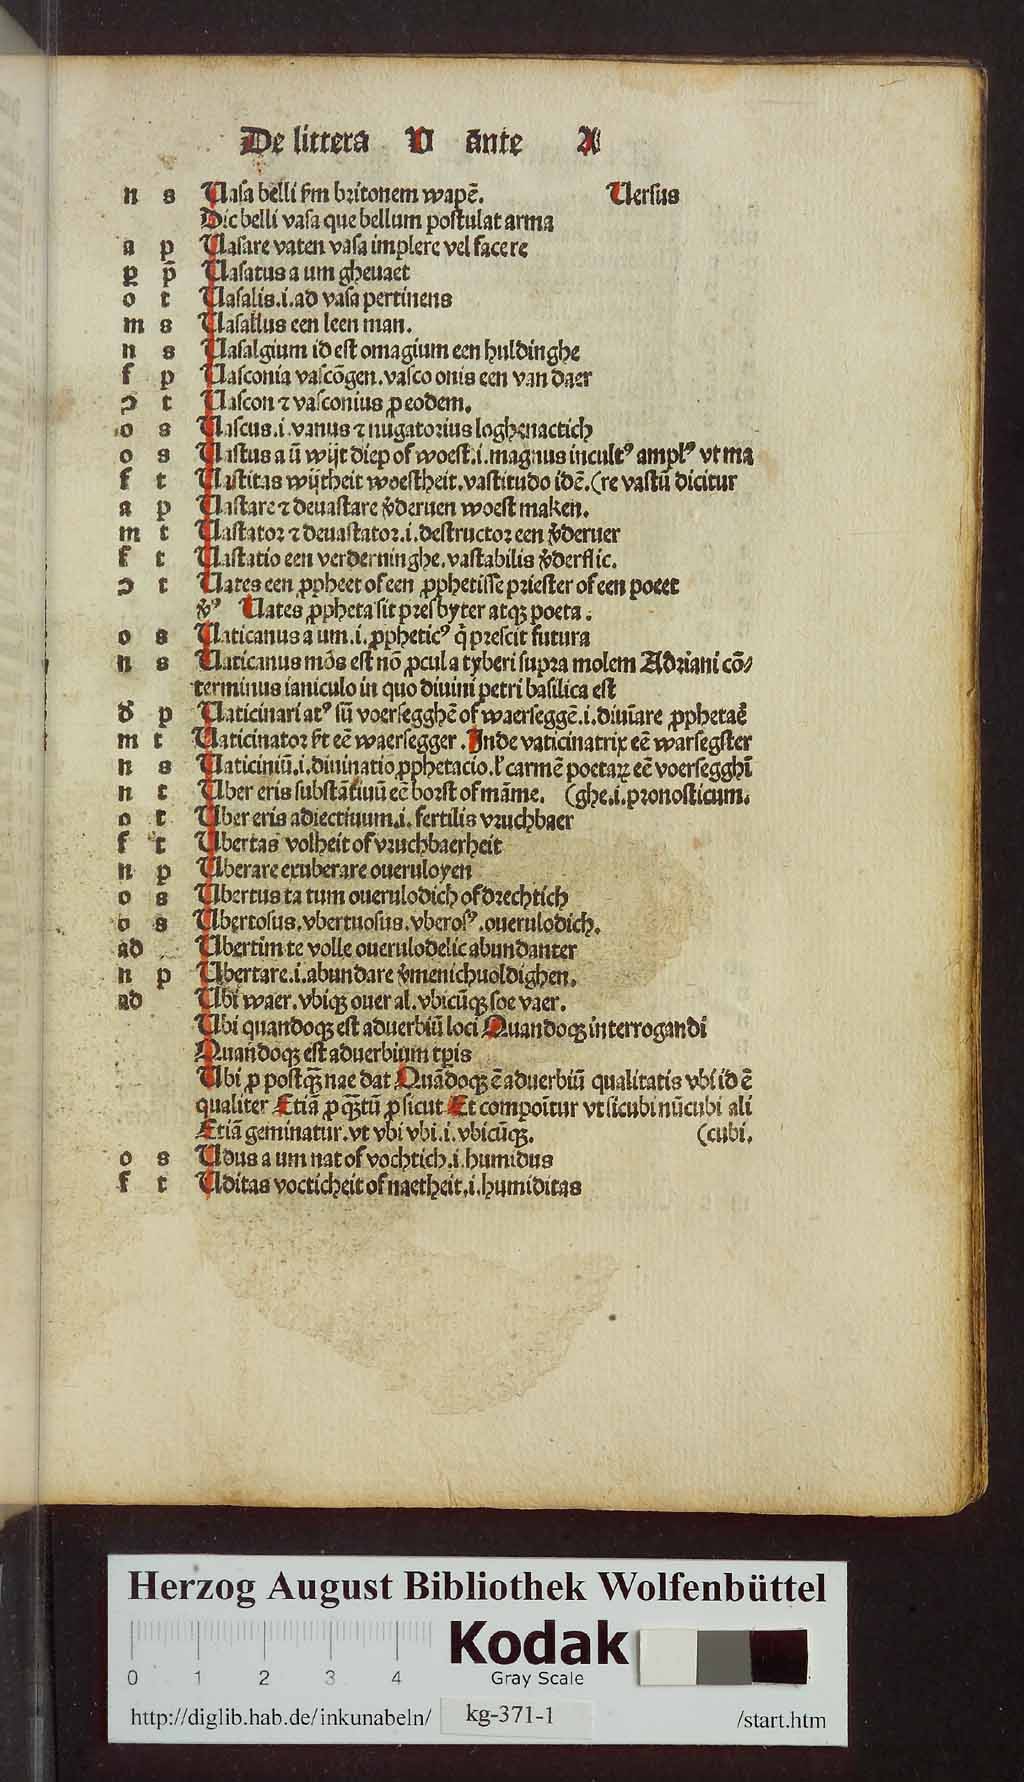 De littera U ante A
n s Uasa belli ẜm britonem wapē. Uersus
Dic belli vasa que bellum postulat arma
a p Uasare vaten vasa implere vel facere
p̱ p̄ Uasatus a um gheuaet
o t Uasalis.i.ad vasa pertinens
m s Uasallus een leen man.
n s Uasalgium id est omagium een huldinghe
f p Uasconia vascōgen.vasco onis een van daer
ɔ t Uascon ⁊ vasconius ꝓ eodem.
o s Uascus.i.vanus ⁊ nugatorius loghenactich
o s Uastus a ū wijt diep of woest.i.magnus incultꝰ amplꝰ vt ma
f t Uastitas wijtheit woestheit.vastitudo idē.(re vastū dicitur
a p Uastare ⁊ deuastare v̄deruen woest maken.
m t Uastator ⁊ deuastator.i.destructor een v̄deruer
f t Uastatio een verderninghe.vastabilis v̄derflic.
ɔ t Uates een ꝓpheet of een ꝓphetisse priester of een poeet
v̄ꝰ Uates ꝓpheta sit presbyter atqꝫ poeta.
o s Uaticanus a um.i.ꝓpheticꝰ q̄ prescit futura
n s Uaticanus mōs est nō ꝓcul a tyberi supra molem Adriani cō⸗
terminus ianiculo in quo diuini petri basilica est
d̄ p Uaticinari atꝰ sū voersegghē of waerseggē.i.diuīare ꝓphetaē
m t Uaticinator ẜt eē waersegger. Inde vaticinatrix eē warsegster
n s Uaticiniū.i.diuinatio ꝓphetacio.ł carmē poetaꝝ eē voersegghī
n t Uber eris substātiuū eē borst of māme. (ghe.i.pronosticum.
o t Uber eris adiectiuum.i.fertilis vruchbaer
f t Ubertas volheit of vruchbaerheit
n p Uberare exuberare oueruloyen
o s Ubertus ta tum ouerulodich of drechtich
o s Ubertosus.vbertuosus.vberosꝰ.ouerulodich.
ad Ubertim te volle ouerulodelic abundanter
n p Ubertare.i.abundare v̄menichuoldighen.
ad Ubi waer.vbiqꝫ ouer al.vbicūqꝫ soe vaer.
Ubi quandoqꝫ est aduerbiū loci Quandoqꝫ interrogandi
Quandoqꝫ est aduerbium tp̄is
Ubi ꝓ postqꝫ nae dat Quādoqꝫ ē aduerbiū qualitatis vbi id ē
qualiter Etiā ꝓ qꝫtū ꝓ sicut Et compoītur vt sicubi nūcubi ali
Etiā geminatur.vt vbi vbi.i.vbicūqꝫ. (cubi.
o s Udus a um nat of vochtich.i.humidus
f t Uditas vocticheit of naetheit.i.humiditas
Herzog August Bibliothek Wolfenbüttel
0 1 2 3 4
Kodak
Gray Scale
http://diglib.hab.de/inkunabeln/ kg-371-1 /start.htm